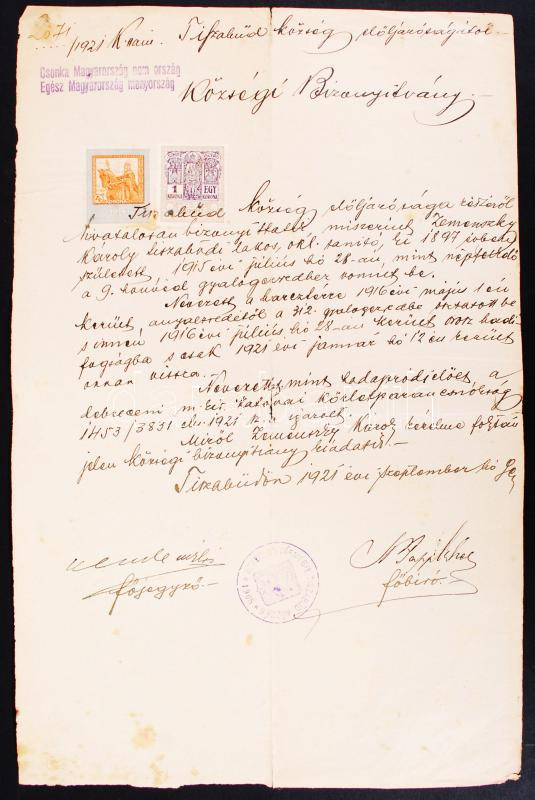 2071
/1921 K. szám. Tiszabüd község elöljáróságától
Csonka Magyarország nem ország
Egész Magyarország menyország
Községi Bizonyitvány.
1 KORONA EGY KORONA
Tiszabüd község elöljárósága részéről
hivatalosan bizonyittatik miszerint Zemenszky
Károly tiszabüdi lakos, okl. tanító, ki 1897 évben
született 1915 évi július hó 28-án, mint népfelkelő
a 9. honvéd gyalogezredhez vonult be.
Nevezett a harcztérre 1916 évi május
került, a 312. gyalogezredbe osztatott be
s innen 1916 évi július hó 28-án került orosz hadi
fogságba s csak 1921 évi január hó 12 én került
onnan vissza.
Nevezett mint hadapródjelölt, a
debreceni m. kir. katonai körletparancsnokság
1453/3831 1921 igazolt.
Miről Zemenszky Károly kérelme folytán
jelen községi bizonyitvány kiadatik.
Tiszabüdön 1921 évi szeptember hó
főjegyző
főbiró.